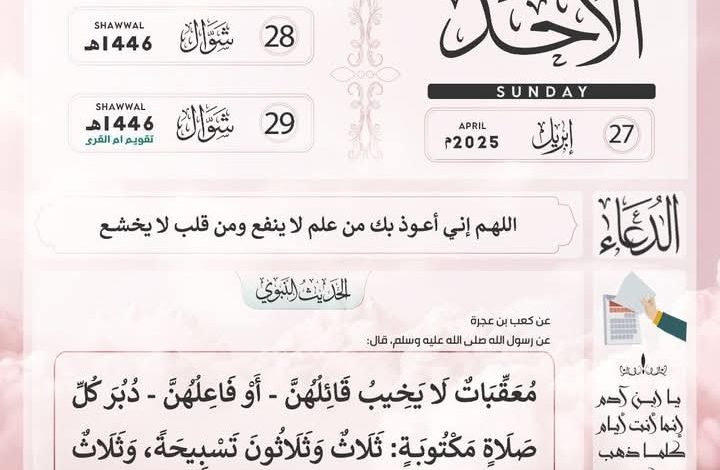 الأحد
SUNDAY
27 إبريل APRIL 2025م
28 شوال SHAWWAL 1446هـ
29 شوال SHAWWAL 1446هـ
تقويم ام القرى
الدعاء
اللهم إني أعوذ بك من علم لا ينفع ومن قلب لا يخشع
الحديث النبوي
عن كعب بن عجرة
عن رسول الله صلى الله عليه وسلم، قال:
مُعَقِّبَاتٌ لَا يَخِيبُ قَائِلُهُنَّ - أَوْ فَاعِلُهُنَّ - دُبُرَ كُلِّ
صَلَاةٍ مَكْتُوبَةٍ: ثَلَاثٌ وَثَلَاثُونَ تَسْبِيحَةً، وَثَلَاثٌ
يا ابن آدم
إنما أنت أيام
كلما ذهب